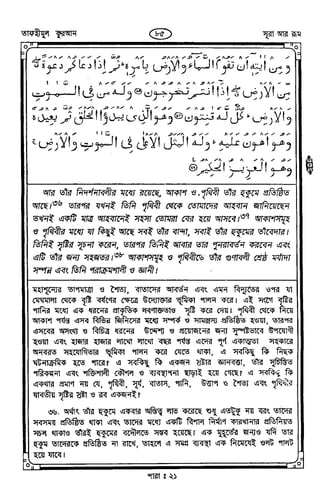 তাফহীমুল কুরআন
৮৫
সূরা আর রূম
وَمِنْ اٰيٰتِهٖٓ اَنْ تَقُوْمَ السَّمَآءُ وَالْاَرْضُ بِاَمْرِهٖ ؕ ثُمَّ اِذَا دَعَاكُمْ دَعْوَةً ۖ
مِّنَ الْاَرْضِ ۖ اِذَآ اَنْتُمْ تَخْرُجُوْنَ ۞ وَلَهٗ مَنْ فِى السَّمٰوٰتِ
وَالْاَرْضِ ؕ كُلٌّ لَّهٗ قٰنِتُوْنَ ۞ وَهُوَ الَّذِيْ يَبْدَؤُا الْخَلْقَ ثُمَّ يُعِيْدُهٗ
وَهُوَ اَهْوَنُ عَلَيْهِ ؕ وَلَهُ الْمَثَلُ الْاَعْلٰى فِى السَّمٰوٰتِ وَالْاَرْضِ ۚ
وَهُوَ الْعَزِيْزُ الْحَكِيْمُ ۞
আর তাঁর নিদর্শনাবলীর মধ্যে রয়েছে, আকাশ ও পৃথিবী তাঁর হুকুমে প্রতিষ্ঠিত
আছে।৩৬ তারপর যখনই তিনি পৃথিবী থেকে তোমাদের আহবান জানিয়েছেন
তখনই একটি মাত্র আহবানেই সহসা তোমরা বের হয়ে আসবে।৩৭ আকাশসমূহ
ও পৃথিবীর মধ্যে যা কিছুই আছে সবই তাঁর বান্দা, সবাই তাঁর হুকুমের তাঁবেদার।
তিনিই সৃষ্টির সূচনা করেন, তারপর তিনিই আবার তার পুনরাবর্তন করবেন এবং
এটি তাঁর জন্য সহজতর।৩৮ আকাশসমূহ ও পৃথিবীতে তাঁর গুণাবলী শ্রেষ্ঠ মর্যাদা
সম্পন্ন এবং তিনি পরাক্রমশালী ও জ্ঞানী।
মহাশূন্যের তাপমাত্রা ও শৈত্য, বাতাসের আবর্তন এবং এমন বিদ্যুতের ওপর যা
মেঘমালা থেকে বৃষ্টি বর্ষণের ক্ষেত্রে উদ্যোক্তার ভূমিকা পালন করে। এই সংগে বৃষ্টির
পানির মধ্যে এক ধরনের প্রাকৃতিক লবণাক্ততাও সৃষ্টি করে দেয়। পৃথিবী থেকে নিয়ে
আকাশ পর্যন্ত এসব বিভিন্ন জিনিসের মধ্যে সম্পর্ক ও সামঞ্জস্য প্রতিষ্ঠিত হওয়া, তারপর
এসবের অসংখ্য ও বিচিত্র ধরনের উদ্দেশ্য ও প্রয়োজনের জন্য সুস্পষ্টভাবে উপযোগী
হওয়া এবং হাজার হাজার লাখো লাখো বছর পর্যন্ত এদের পূর্ণ একাত্মতা সহকারে
অনবরত সহযোগিতার ভূমিকা পালন করে যেতে থাকা, এ সবকিছু কি নিছক
ঘটনাক্রমিক হতে পারে? এ সবকিছু কি একজন স্রষ্টার জ্ঞানবত্তা, তাঁর সুচিন্তিত
পরিকল্পনা এবং শক্তিশালী কৌশল ও ব্যবস্থাপনা ছাড়াই হয়ে গেছে? এ সবকিছু কি
একথার প্রমাণ নয় যে, পৃথিবী, সূর্য, বাতাস, পানি, উত্তাপ ও শৈত্য এবং পৃথিবীর
যাবতীয় সৃষ্টির স্রষ্টা ও রব একজনই?
৩৬. অর্থাৎ তাঁর হুকুমে একবার অস্তিত্ব লাভ করেছে শুধু এতটুকু নয় বরং তাদের
সবসময় প্রতিষ্ঠিত থাকা এবং তাদের মধ্যে একটি বিশাল নির্মাণ কারখানার প্রতিনিয়ত
সচল থাকাও তাঁরই হুকুমের বদৌলতে সম্ভব হয়েছে। এক মুহূর্তের জন্যও যদি তাঁর
হুকুম তাদেরকে প্রতিষ্ঠিত না রাখে, তাহলে এ সমগ্র ব্যবস্থা এক নিমেষেই ওলট পালট
হয়ে যাবে।
পারা : ২১